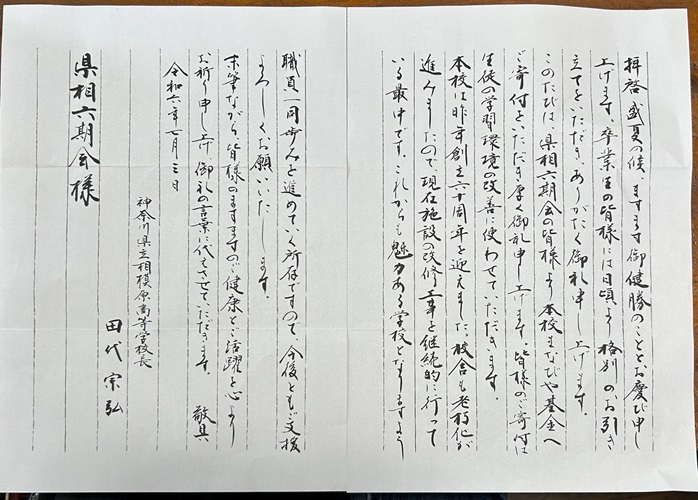 拝啓 盛夏の候、ますます御健勝のこととお慶び申し
上げます。卒業生の皆様には日頃より格別のお引き
立てをいただき、ありがたく御礼申し上げます。
このたびは、県相六期会の皆様より本校まなびや基金へ
ご寄付をいただき厚く御礼申し上げます。皆様のご寄付は
生徒の学習環境の改善に使わせていただきます。
本校は昨年創立六十周年を迎えました。校舎も老朽化が
進みましたので現在施設の改修工事を継続的に行って
いる最中です。これからも魅力ある学校となりますよう
職員一同歩みを進めていく所存ですので、今後ともご支援
よろしくお願いいたします。
末筆ながら皆様のますますのご健康とご活躍を心より
お祈り申し上げ御礼の言葉に代えさせていただきます。 敬具
令和六年七月三日
神奈川県立相模原高等学校長
田代宗弘
県相六期会様